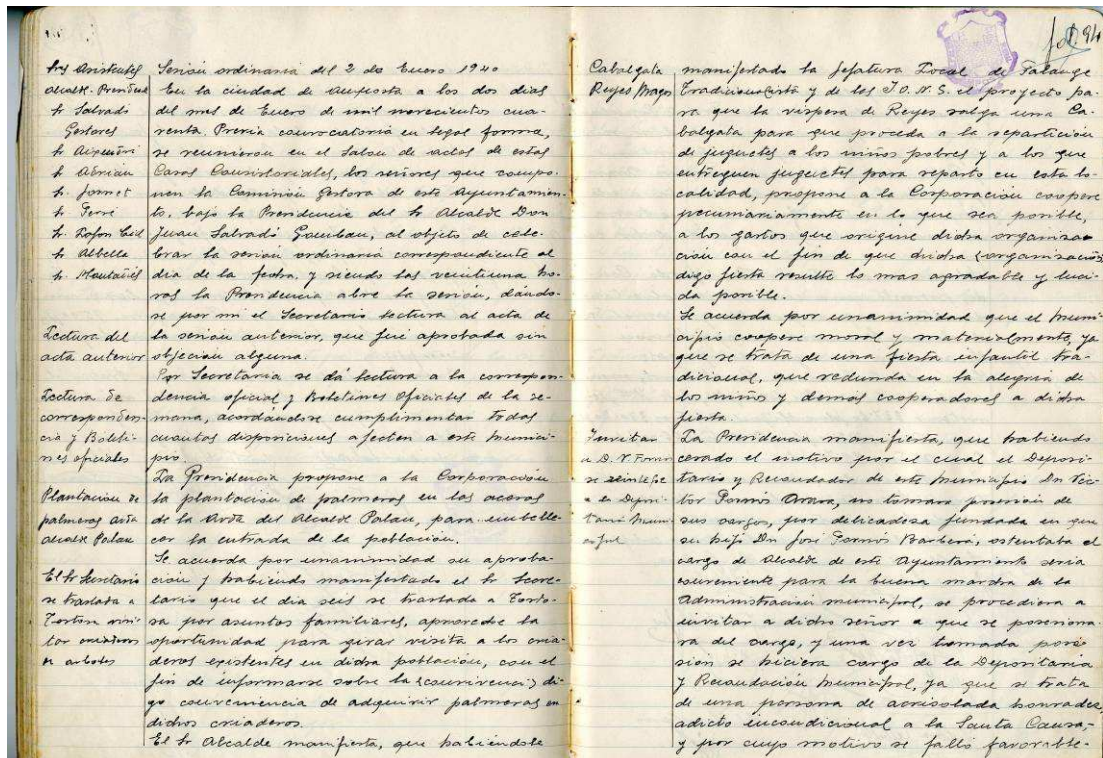 Sres Asistentes
Alcalde-Presidente
Sr Salvadó
Gestores
Sr Aixendri
Sr Adrián
Sr. Jornet
Sr Ferré
Sr.
Sr Albella
Sr. Montañés
Lectura del
acta anterior
Lectura de
corresponden-
cia y Boleti-
nes oficiales
Plantación de
palmeras avda
alcalde Palau
El Sr Secretario
se traslada a
Tortosa visi-
tar criaderos
de arboles
Sesión ordinaria del 2 de Enero 1940
En la ciudad de Amposta a los dos dias
del mes de Enero de mil novecientos cua-
renta. Previa convocatoria en legal forma,
se reunieron en el Salon de actos de estas
Casas Consistoriales, los señores que compo-
nen la Comisión Gestora de este Ayuntamien-
to, bajo la Presidencia del Sr Alcalde Don
Juan Salvadó Gombau, al objeto de cele-
brar la sesión ordinaria correspondiente al
dia de la fecha, y siendo las veintiuna ho-
ras la Presidencia abre la sesión, dándo-
se por mi el Secretario lectura al acta de
la sesión anterior, que fué aprobada sin
objeción alguna.
Por Secretaria se dá lectura a la correspon-
dencia oficial y Boletines Oficiales de la se-
mana, acordándose cumplimentar todas
cuantas disposiciones afecten a este Munici-
pio.
La Presidencia propone a la Corporación
la plantación de palmeras en las aceras
de la Avda del Alcalde Palau, para embelle-
cer la entrada de la población.
Se acuerda por unanimidad su aproba-
ción y habiendo manifestado el Sr Secre-
tario que el dia seis se traslada a Torto-
sa por asuntos familiares, aproveche la
oportunidad para girar visita a los cria-
deros existentes en dicha población, con el
fin de informarse sobre la (convivencia) di-
go conveniencia de adquirir palmeras en
dichos criaderos.
El Sr Alcalde manifiesta, que habiéndole
fol. 94
Cabalgata
Reyes Magos
Invitar
a D. V. Forn
se reintegre
a la Deposi-
taria Muni-
cipal
manifestado la Jefatura Local de Falange
Tradicionalista y de las J.O.N.S. el proyecto pa-
ra que la vispera de Reyes salga una Ca-
balgata para que proceda a la repartición
de juguetes a los niños pobres y a los que
entreguen juguetes para reparto en esta lo-
calidad, propone a la Corporación coopere
pecuniariamente en lo que sea posible,
a los gastos que origine dicha organiza-
ción con el fin de que dicha (organización)
digo fiesta resulte lo mas agradable y luci-
da posible.
Se acuerda por unanimidad que el Muni-
cipio coopere moral y materialmente, ya
que se trata de una fiesta infantil tra-
dicional, que redunda en la alegria de
los niños y demas cooperadores a dicha
fiesta.
La Presidencia manifiesta, que habiendo
cesado el motivo por el cual el Deposi-
tario y Recaudador de este Municipio Dn Vic-
tor Forнós, no tomara posesión de
sus cargos, por delicadeza fundada en que
su hijo Dn José Fornós Barberá, ostentaba el
cargo de Alcalde de este Ayuntamiento seria
conveniente para la buena marcha de la
Administración municipal, se procediera a
invitar a dicho señor a que se posesiona-
ra del cargo, y una vez tomada pose-
sión se hiciera cargo de la Depositaria
y Recaudación Municipal, ya que se trata
de una persona de acrisolada honradez,
adicto incondicional a la Santa Causa,
y por cuyo motivo se falló favorable-